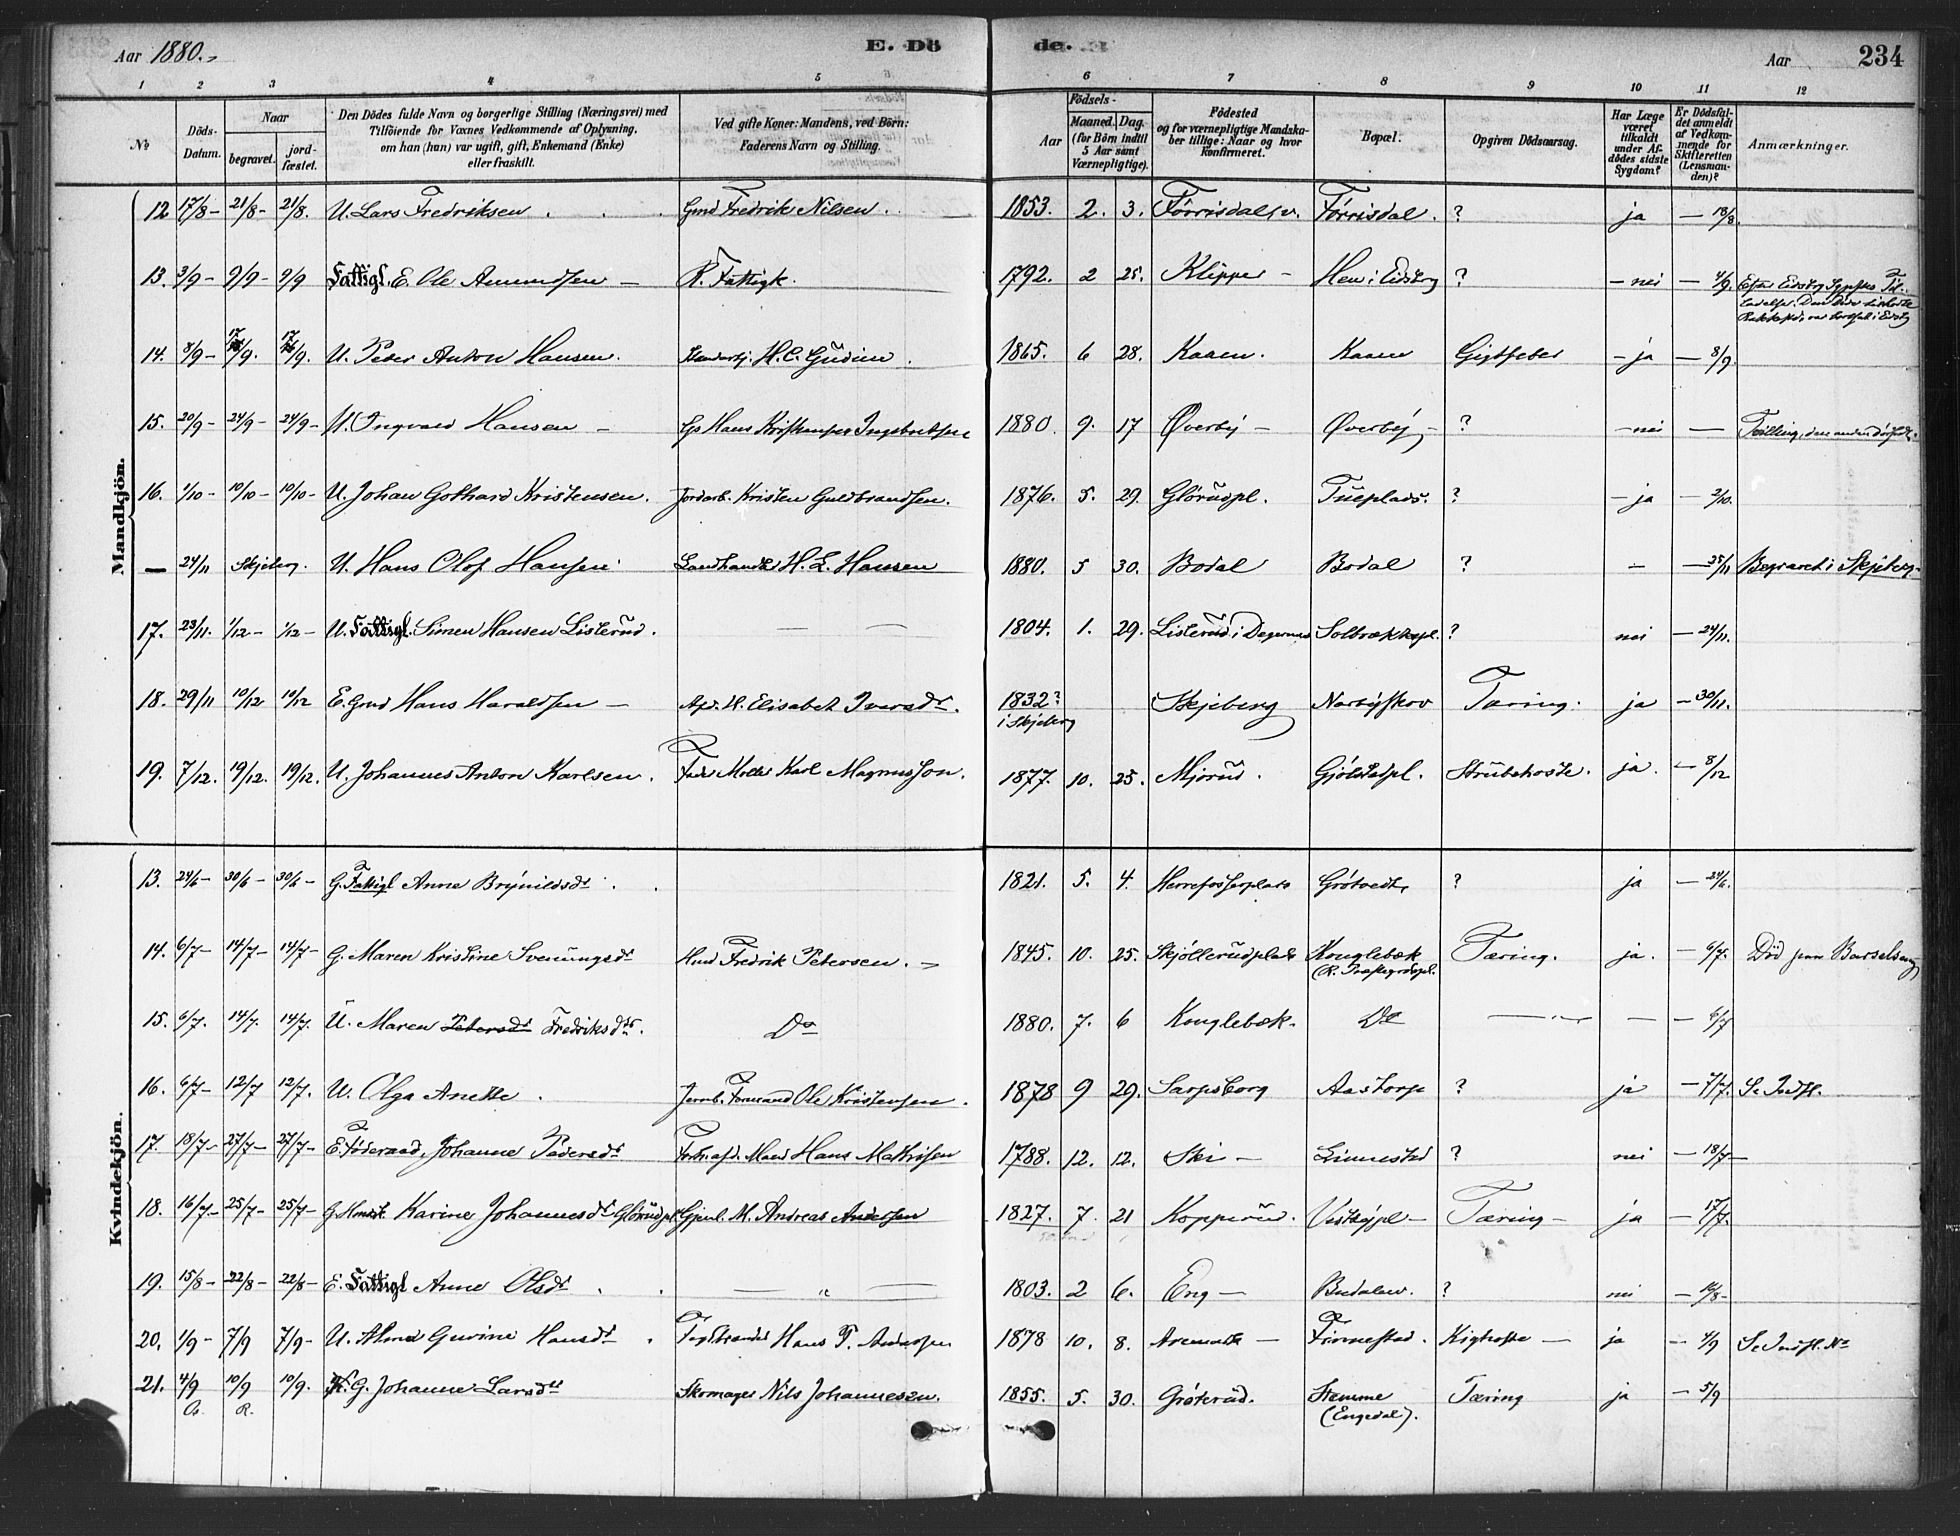 Aar 1880. E. Dö de. Aar 234
1 2 3 4 5 6 7 8 9 10 11 12
No
Döds-Datum.
Naar
begravet.
jordfæstet.
Den Dödes fulde Navn og borgerlige Stilling (Næringsvei) med
Tilföiende for Voxnes Vedkommende af Oplysning,
om han (hun) var ugift, gift, Enkemand (Enke)
eller fraskilt.
Ved gifte Koner: Mandens, ved Börn:
Faderens Navn og Stilling.
Födsels-
Aar
Maaned. Dag.
(for Börn indtil
5 Aar samt
Værnepligtige).
Födested
og for værnepligtige Mandskaber tillige: Naar og hvor
Konfirmeret.
Bopæl.
Opgiven Dödsaarsag.
Har Læge
været
tilkaldt
under Afdödes sidste
Sygdom?
Er Dödsfaldet anmeldt
af Vedkommende for
Skifteretten
(Lensmanden)?
Anmærkninger.
Mandkjön.
12 17/8 21/8 21/8. U. Lars Fredriksen Gmd Fredrik Nilsen. 1853. 2. 3. Förrisdal. ? ja 18/8.
13. 3/9 9/9 9/9 Fattigl. E. Ole Amundsen R. Fattigk. 1792. 2 25. Klipper Hen i Eidsberg ? nei 4/9.
14. 8/9 17/9. 17/9. U. Peter Anton Hansen. H. C. Gudim. 1865. 6 28. Kaaen. Kaaen Gigtfeber ja 8/9
15. 20/9 24/9 24/9 U. Ingvald Hansen 1880. 9. 17 Øverby Øverby ? nei Tvilling, den anden
16. 1/10 10/10 10/10 U. Johan Gothard Kristensen. Jordarb. Kristen Guldbrandsen. 1876. 5. 29. Glörudpl. Tueplads. ? ja 2/10.
24/11 Skjeberg. U. Hans Olof Hansen Landhandler H. L. Hansen 1880. 5 30. Bodal Bodal ? 25/11 Begravet i Skjeberg
17. 23/11. 1/12 1/12 U. Fattigl. Simen Hansen Listerud. 1804. 1. 29. Listerud i Degernes Solbrækkepl. ? nei 24/11.
18. 29/11 10/12 10/12 E. Gmd Hans Haraldsen Afd. H. Elisabet Iversdr. 1832? i Skjeberg Skjeberg Narbyskov Tæring. ja 30/11.
19. 7/12. 19/12. 19/12. U. Johannes Anton Karlsen. Karl Magnusson. 1877. 10. 25. Mjörud. Gjölstadpl. Strubehoste. ja. 8/12
Kvindekjön.
13. 24/6 30/6 30/6 G. Fattigl Anne Brynildsdr 1821. 5. 4. Herrefosserplads Grötvedt, ? ja 24/6.
14. 6/7 14/7 14/7 G. Maren Kristine Svenungsdr Hmd Fredrik Petersen. 1845. 10. 25. Skjöllerudplads Konglebæk Tæring. ja. 6/7. Död paa Barselseng
15. 6/7. 14/7. 14/7. U. Maren Petersdr Fredriksdr. Do 1880. 7. 6 Konglebæk. Do 6/7
16. 6/7 12/7 12/7. U. Olga Anette Jernb. Formand Ole Kristensen. 1878 9 29. Sarpsborg Aastorp ? ja 7/7. Se Indfl.
17. 18/7 27/7 27/7 E. Föderaad, Johanne Pedersdr Forhv. afd. Mand Hans Mathisen 1788. 12. 12. Ski Linnestad ? nei 18/7
18. 16/7 25/7 25/7 G. Karine Johannesdr Glörudpl. Gjenl. M. Andreas Andersen 1827. 7. 21 Kopperud. Vestbypl Tæring ja 17/7.
19. 15/8 22/8 22/8 E. Fattigl Anne Olsdr " 1803. 2 6. Eng Budalen. ? nei 16/8
20. 1/9 7/9 7/9 U. Anna Gurine Hansdr Teglbrænder Hans T. Andersen 1878 10. 8. Aremark Finnestad. Kighoste ja 4/9 Se Indfl. No
21. 4/9 10/9 10/9. G. Johanne Larsdr Skomager Nils Johannesen. 1855. 5. 30. Gröterud. Stemme Tæring ja 5/9
R. (Engedal).